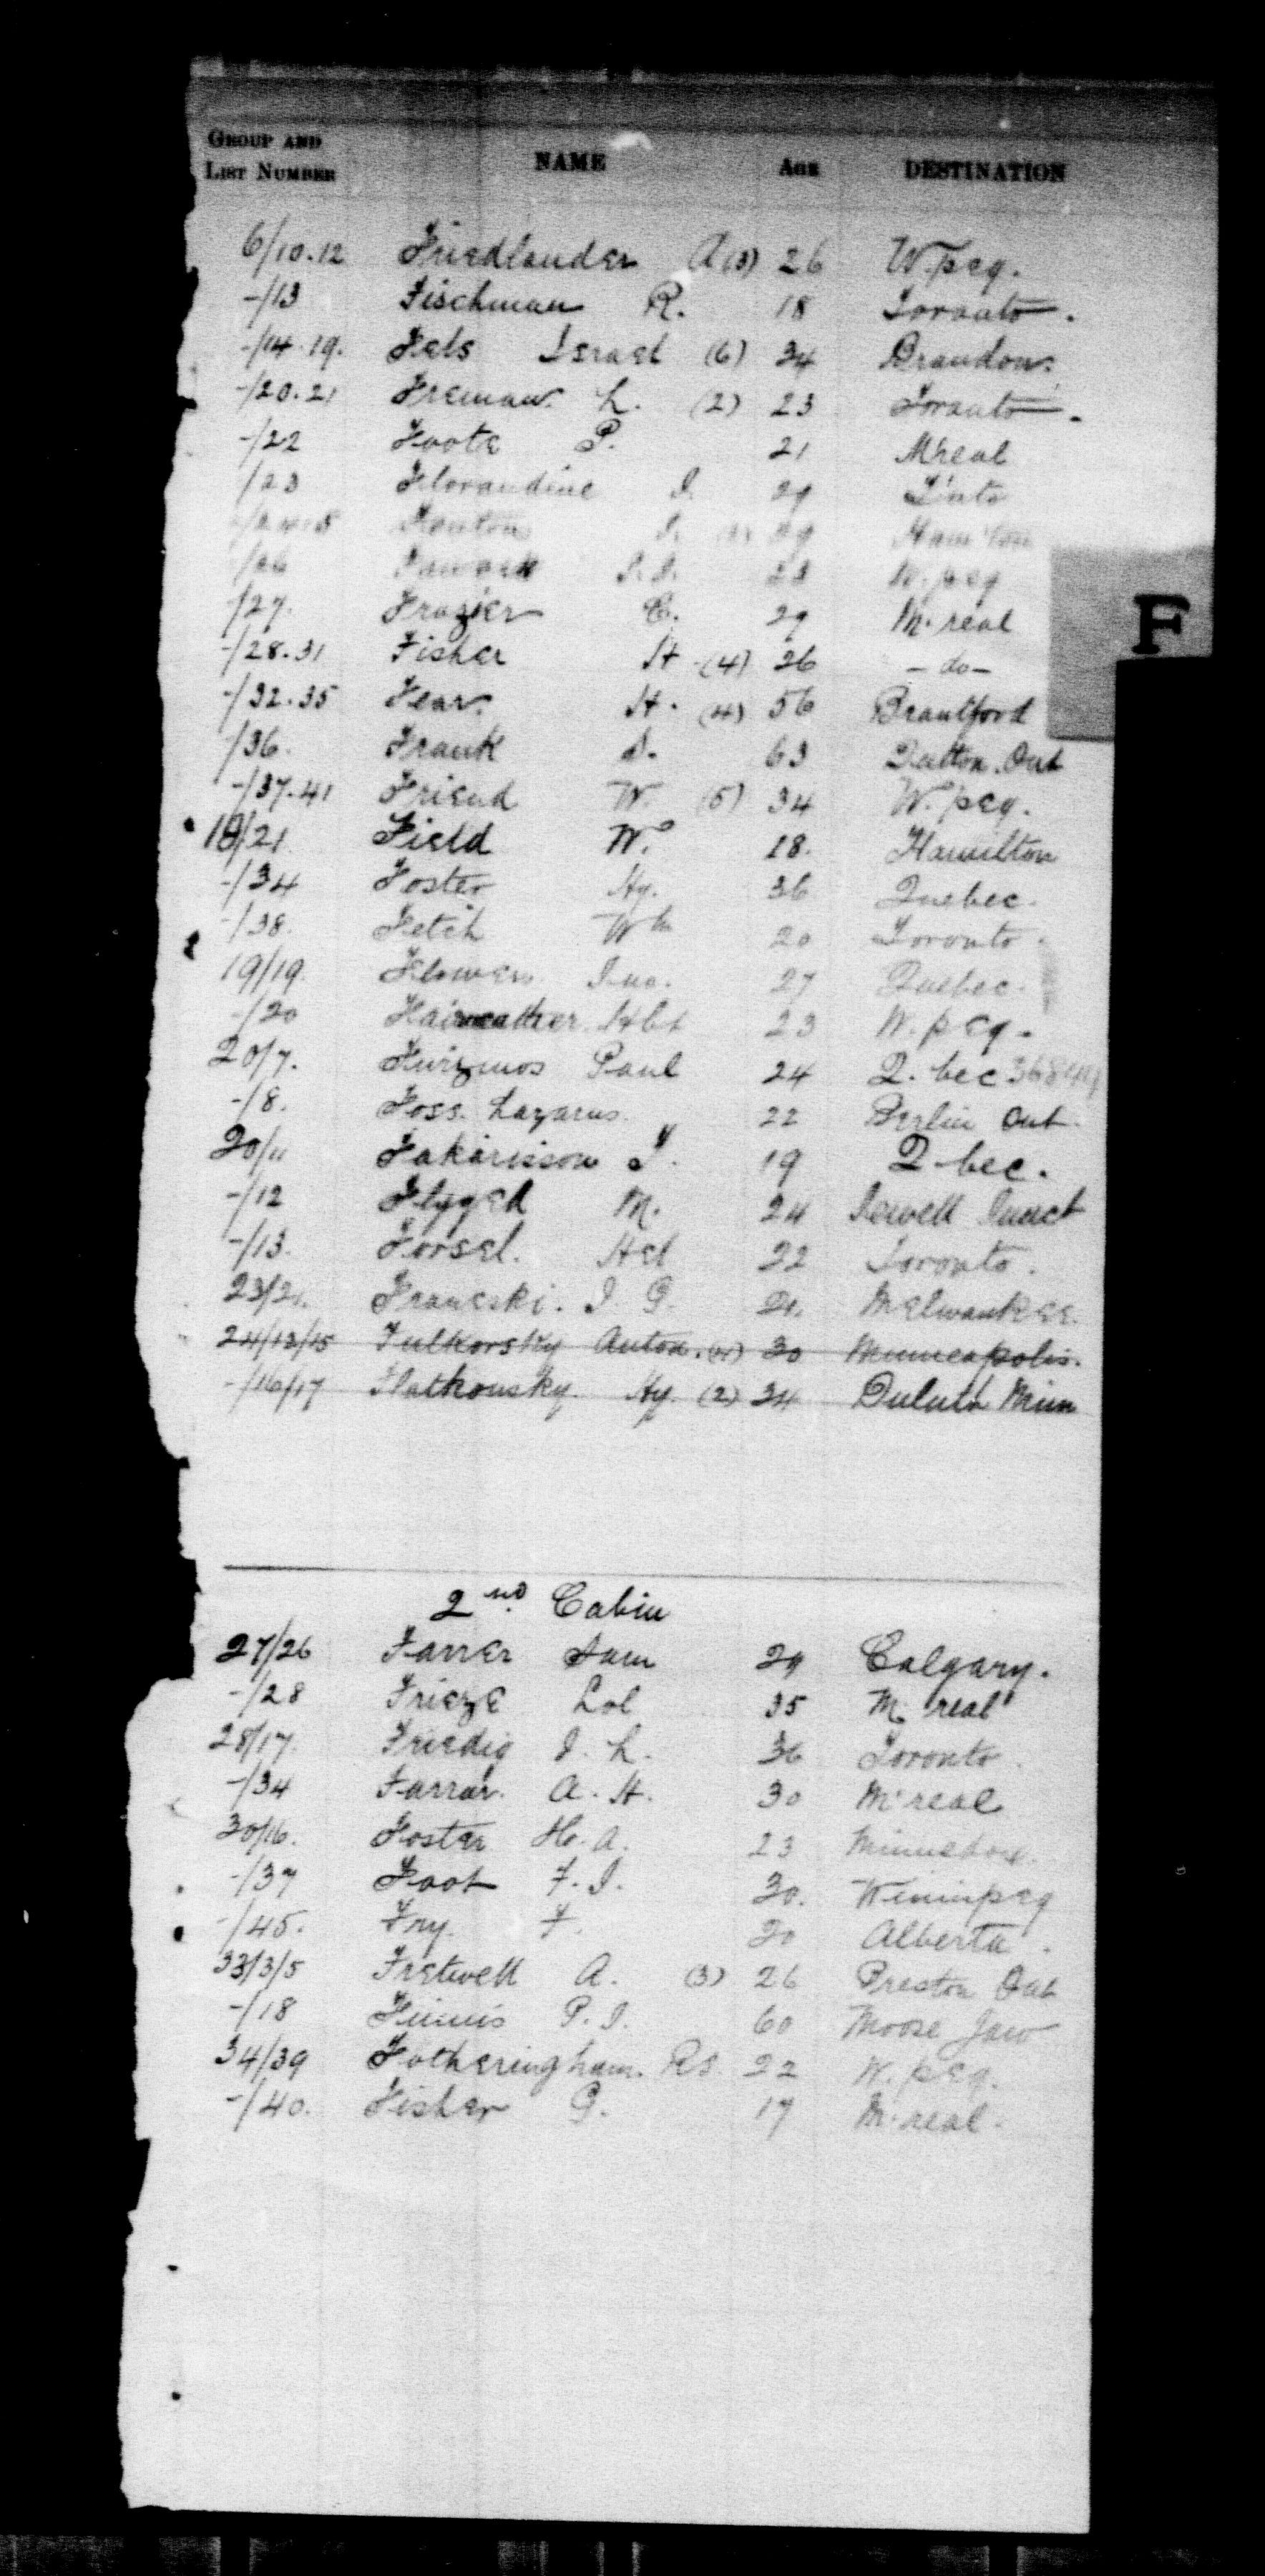 GROUP AND LIST NUMBER NAME AGE DESTINATION
6/10.12 Friedlander A (3) 26 W.peg.
-/13 Fischman R. 18 Toronto.
-/14.19. Fels Israel (6) 34 Brandon.
-/20.21 Freman L. (2) 23 Toronto.
-/22 Foote P. 21 M'real
/23 Florandine 29 T'nto
29
/26 23 W.peg
/27. Frazier C. 29 M.real
-/28.31 Fisher H (4) 26 -do-
-/32.35 Fear. H. (4) 56 Brantford
/36. Frank S. 63 Dutton. Ont
-/37.41 Friend W. (5) 34 W.peg.
18/21 Field W. 18. Hamilton
-/34 Foster Hy. 36 Quebec.
-/38. Fetch Wm 20 Toronto.
19/19. Flowers Jno. 27 Quebec.
-/20 Fairweather Hbt 23 W.peg.
20/7. Paul 24 Q.bec
-/8. Foss. Lazarus. 22 Berlin Ont.
20/11 Fakarisson J. 19 Q bec.
-/12 M. 24 Sewell Junct
-/13. Forsel. Hel 22 Toronto.
23/21. Franeski. J G. 21. Melwaukee.
24/13/15 Fulkorsky Anton. 30 Minneapolis.
-/16/17 Flatkousky. Hy. (2) 34 Duluth Minn
2nd Cabin
27/26 Farrer Sam 29 Calgary.
-/28 Frieze Lol 35 M real
28/17. Friedig J. L. 36 Toronto.
-/34 Farrar. A. H. 30 M'real
30/16. Foster H. A. 23
-/37 Foot F. J. 30. Winnipeg
-/45. Fry. F. 20 Alberta.
33/3/5 Fretwell A. (3) 26 Preston Ont
-/18 P. J. 60 Moose Jaw
34/39 Fotheringham. RS. 22 W.peg.
-/40. Fisher G. 17 M.real.
F